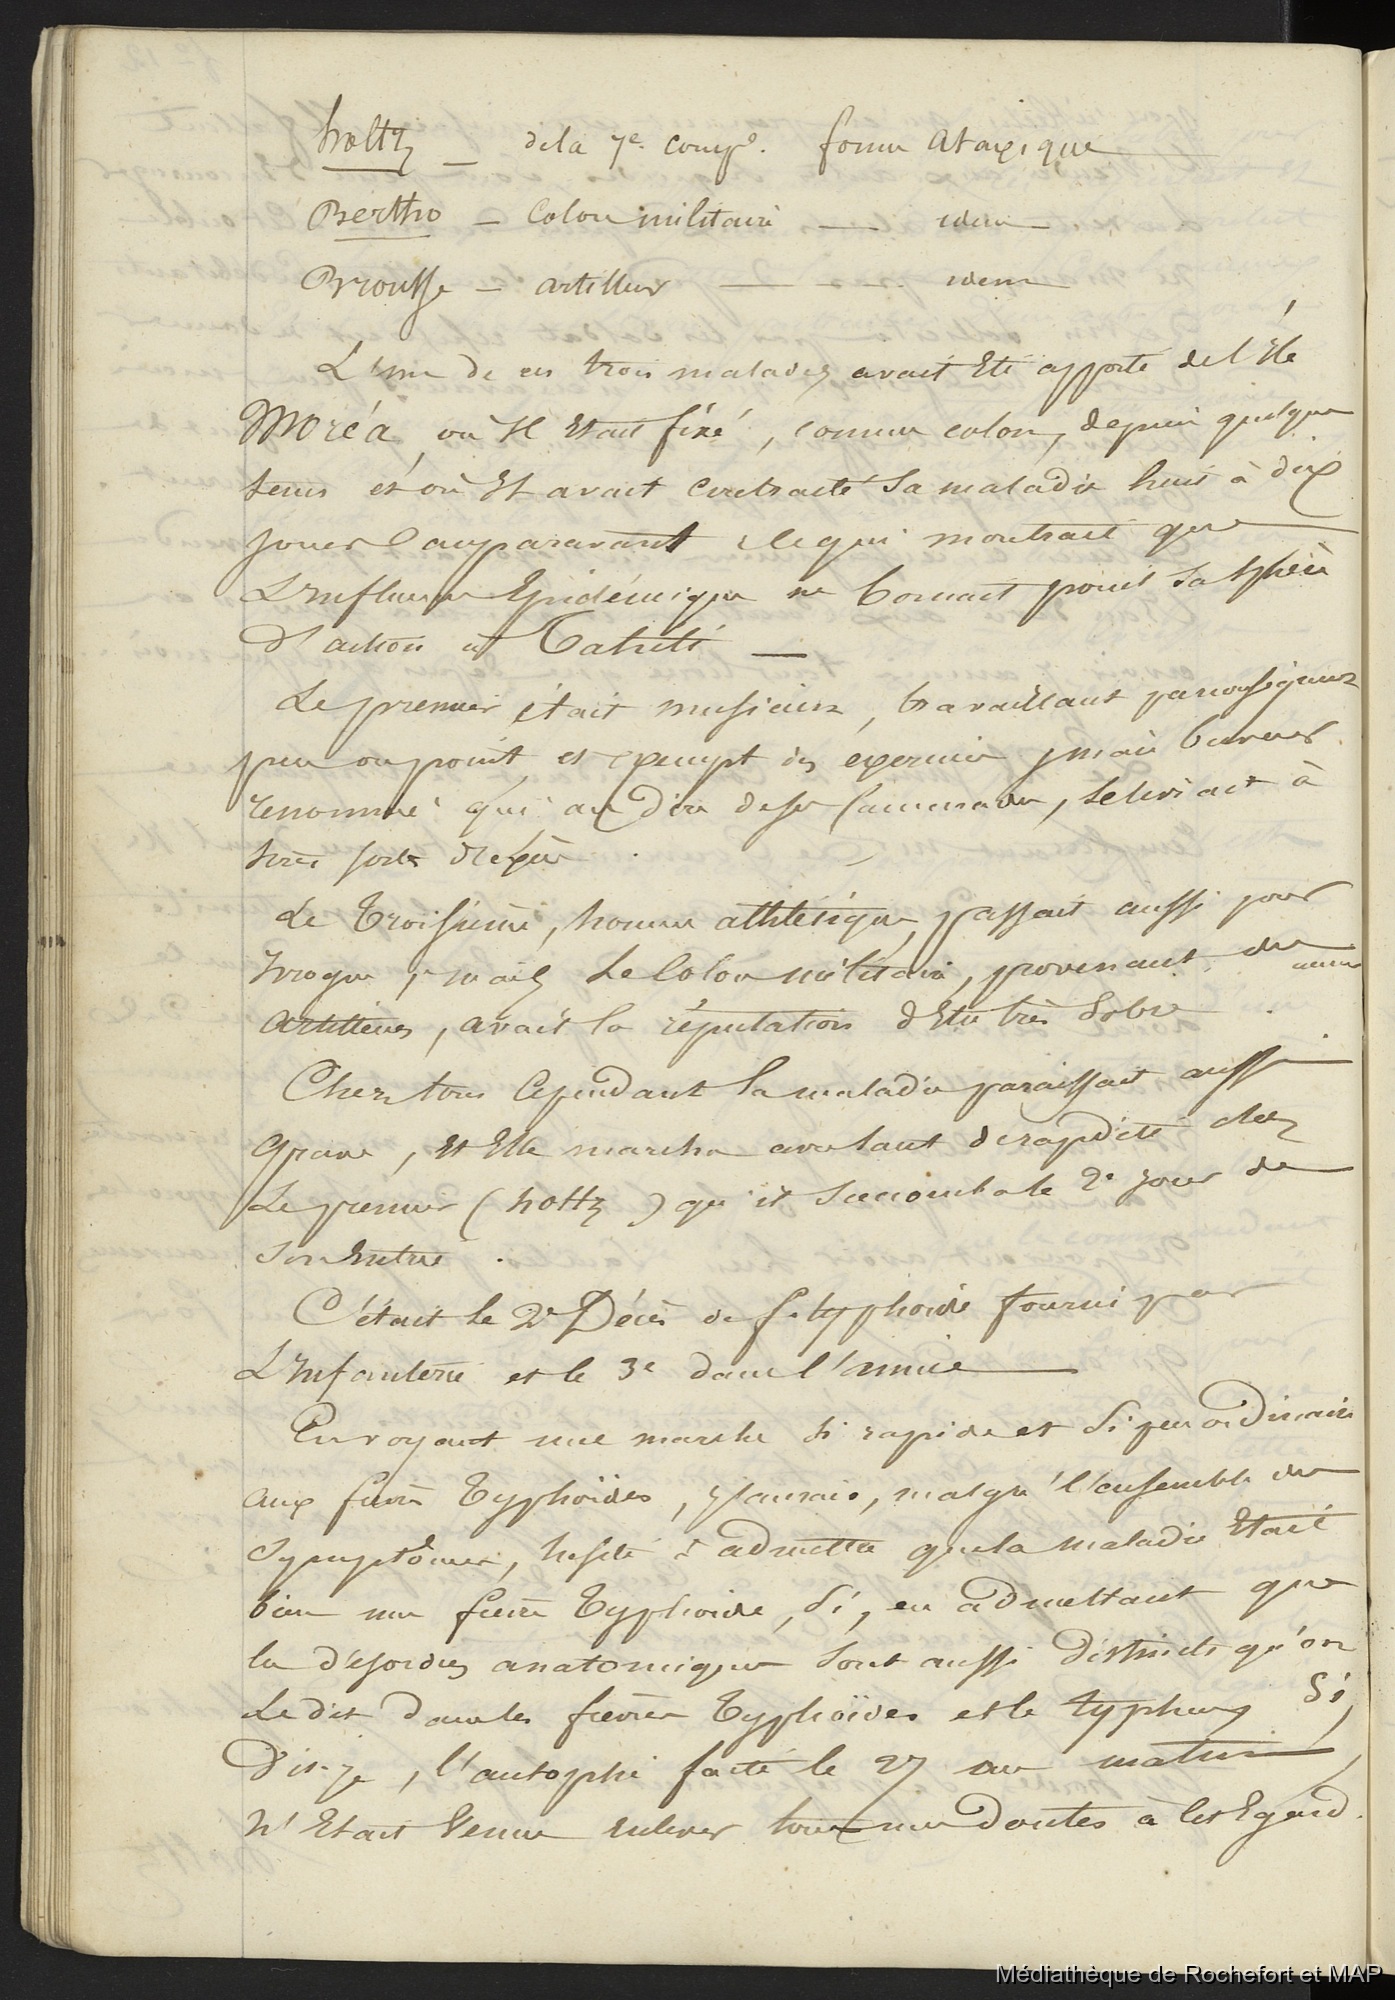 holtz — de la 7e. compie. forme ataxique
Bertho — Colon militaire — idem
Brousse — artilleur — — — idem
L'un de ces trois malades avait Eté apporté de l'Ile
Moréa, où Il Etait fixé, comme colon, depuis quelque
tems et où Il avait contracté Sa maladie huit à dix
jours auparavant, ce qui montrait que
L'Influence Epidémique ne bornait point Sa Sphère
d'action à Tahiti —
Le premier était musicien, travaillant par conséquent
peu ou point, et exempt des exercices, mais buveur
renommé qui au dire de ses Camarades, se livrait à
très forte
Le troisième, homme athlétique, passait aussi pour
Ivrogne, mais Le Colon militaire, provenant des
artilleurs, avait la réputation d'Etre très Sobre.
Chez tous Cependant la maladie paraissait aussi
grave, et Elle marcha avec tant de rapidité chez
Le premier (holtz) qu'il Succomba le 2e jour de
Son Entrée.
C'était le 2e Décès de f. typhoïde fourni par
L'Infanterie et le 3e dans l'année —
En voyant une marche Si rapide et Si peu ordinaire
aux fièvres Typhoïdes, j'aurais, malgré l'ensemble des
Symptômes, hésité à admettre que la maladie Etait
bien une fièvre Typhoïde, Si, en admettant que
les désordres anatomiques Sont aussi distincts qu'on
Le dit dans les fièvres Typhoïdes et le typhus, Si,
dis-je, l'autopsie faite le 27 au matin,
n'Etait Venue enlever tous mes Doutes à cet Egard.
Médiathèque de Rochefort et MAP